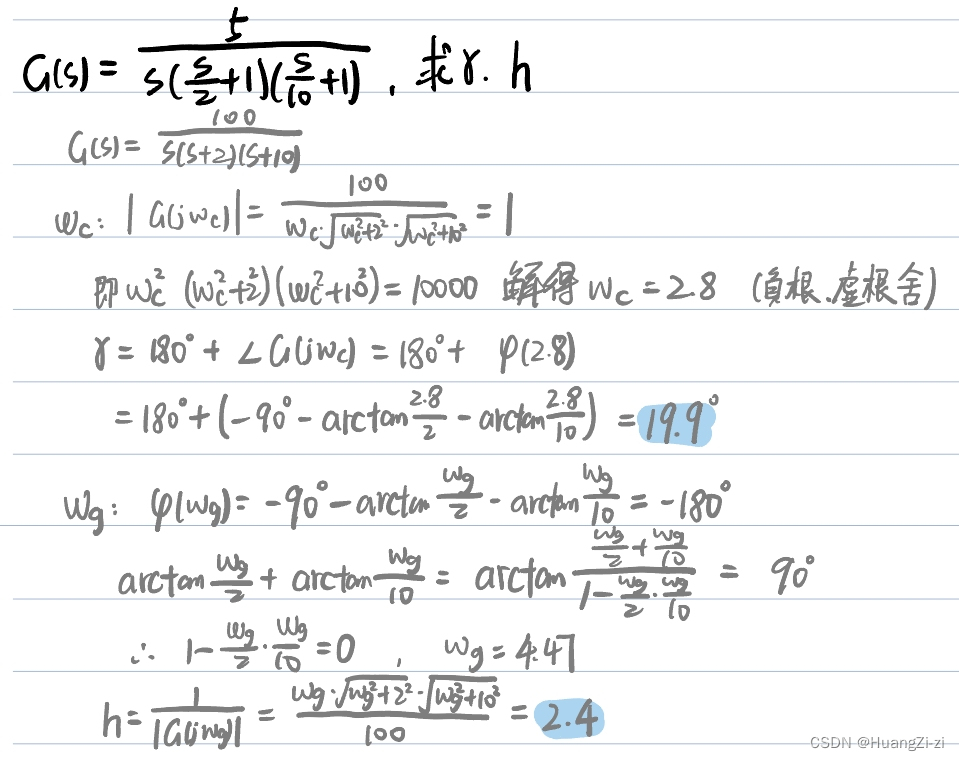 G(s) = 5 / s(s/2+1)(s/10+1) , 求γ. h
G(s) = 100 / s(s+2)(s+10)
ωc: |G(jωc)| = 100 / ωc·√(ωc²+2²)·√(ωc²+10²) = 1
即 ωc² (ωc²+2²)(ωc²+10²) = 10000 解得 ωc = 2.8 (負根、虚根舍)
γ = 180° + ∠G(jωc) = 180° + φ(2.8)
= 180° + (-90° - arctan 2.8/2 - arctan 2.8/10) = 19.9°
ωg: φ(ωg) = -90° - arctan ωg/2 - arctan ωg/10 = -180°
arctan ωg/2 + arctan ωg/10 = arctan (ωg/2 + ωg/10) / (1 - ωg/2 · ωg/10) = 90°
∴ 1 - ωg/2 · ωg/10 = 0 , ωg = 4.47
h = 1 / |G(jωg)| = ωg·√(ωg²+2²)·√(ωg²+10²) / 100 = 2.4
CSDN @HuangZi-zi